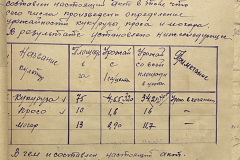 составлен настоящий акт в том что
сего числа произведено определение
урожайности кукурузы проса и могара
В результате установлено нижеследующее
Название культур Площадь га Урожай с гектара Урожай со всей площади в цент. Примечание
Кукуруза 75
Просо 10 1,6 16
Могар 13 2,90 11,7 —
В чем и составлен настоящий акт.